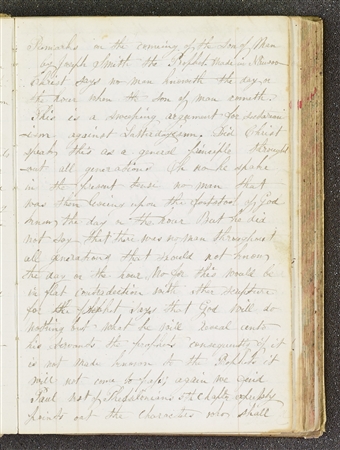 Remarks on the comming of the Son of Man
by Joseph Smith the Prophet made in Nauvoo
Christ says no man knoweth the day or
the hour when the Son of man cometh
This is a sweeping argument for sectarian
ism against Latterdayism. Did Christ
speak this as a general principle throught
out all generations Oh no he spake
in the present tense no man that
was then living upon the footstool of God
knew the day or the hour But he did
not say that there was no man throughout
all generations that should not know
the day or the hour No for this would be
in flat contradiction with other scripture
for the prophet says that God will do
nothing but what he will reveal unto
his servants the prophets consequently if it
is not made known to the Prophets it
will not come to pass; again we find
Paul 1st Thesselonians 5th chapter expressly
points out the characters who shall